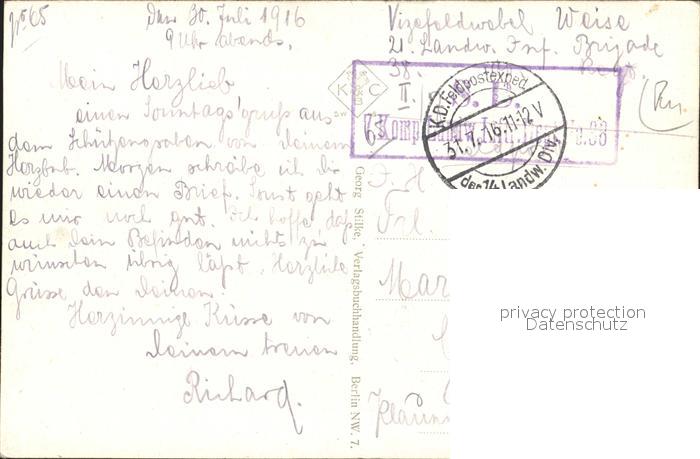 No 65
Den 30. Juli 1916
9 Uhr abends.
Mein Herzlieb
einen Sonntagsgruß aus
dem Schützengraben von Deinem
Herzbub. Morgen schreibe ich Dir
wieder einen Brief. Sonst geht
es mir noch gut. Ich hoffe daß
auch Dein Befinden nichts zu
wünschen übrig läßt. Herzliche
Grüsse den Deinen.
Herzinnige Küsse von
Deinem treuen
Richard.
Vizefeldwebel Weise
21. Landw. Inf. Brigade
38.
II.
S. B.
6. Komp. Landw. Inf. Regt. No. 38
K.D. Feldpostexped.
31.7.16.11-12V
der 14. Landw. Div.
K C
Georg Stilke, Verlagsbuchhandlung, Berlin NW. 7.
Frl.
Mar
privacy protection
Datenschutz